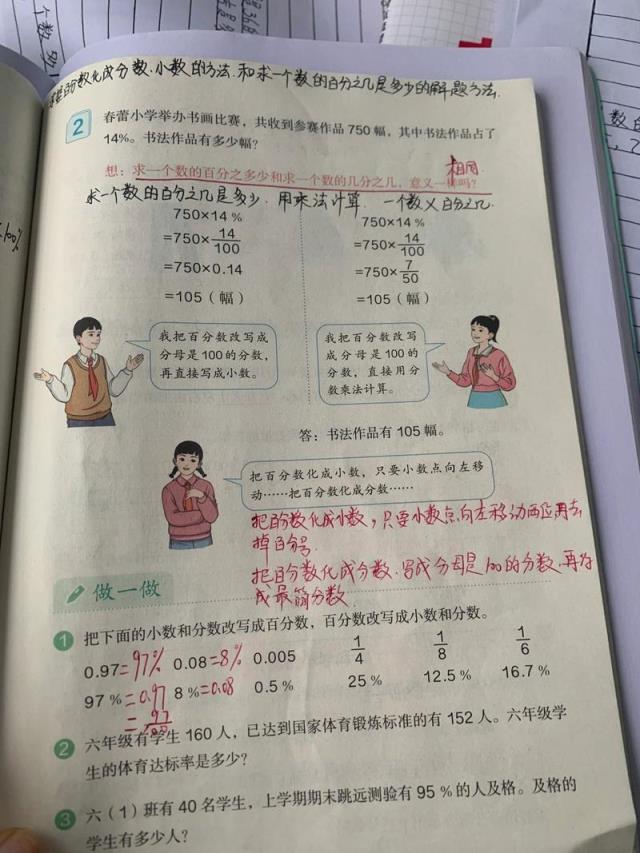 百分数化成分数、小数的方法.和求一个数的百分之几是多少的解题方法.
2 春蕾小学举办书画比赛，共收到参赛作品 750 幅，其中书法作品占了
14%。书法作品有多少幅？
相同.
想：求一个数的百分之多少和求一个数的几分之几，意义一样吗？
求一个数的百分之几是多少. 用乘法计算. 一个数×百分之几.
750×14 %
=750×14/100
=750×0.14
=105（幅）
750×14 %
=750×14/100
=750×7/50
=105（幅）
我把百分数改写成
分母是 100 的分数，
再直接写成小数。
我把百分数改写
成分母是 100 的
分数，直接用分
数乘法计算。
答：书法作品有 105 幅。
把百分数化成小数，只要小数点向左移
动……把百分数化成分数……
把百分数化成小数，只要小数点向左移动两位再去
掉百分号.
把百分数化成分数.写成分母是100的分数.再
成最简分数
做一做
1 把下面的小数和分数改写成百分数，百分数改写成小数和分数。
0.97=97% 0.08=8% 0.005 1/4 1/8 1/6
97 %=0.97 8 %=0.08 0.5 % 25 % 12.5 % 16.7 %
=97/100
2 六年级有学生 160 人，已达到国家体育锻炼标准的有 152 人。六年级学
生的体育达标率是多少？
3 六（1）班有 40 名学生，上学期期末跳远测验有 95 % 的人及格。及格的
学生有多少人？